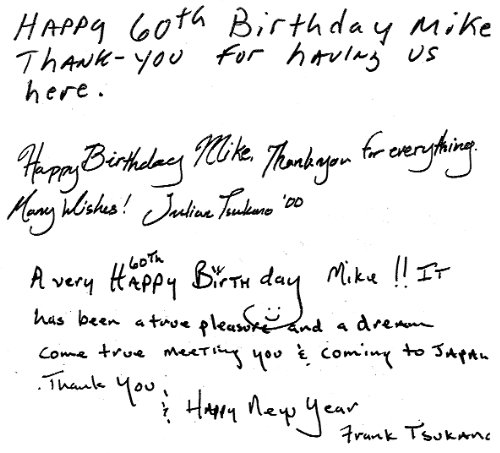 Happy 60th Birthday Mike
Thank-you for having us
here.
Happy Birthday Mike, Thank you for everything.
Many Wishes! Julian Tsukano '00
A very Happy 60th Birthday Mike!! It
has been a true pleasure and a dream
come true meeting you & coming to Japan
. Thank you
& Happy New Year
Frank Tsukano